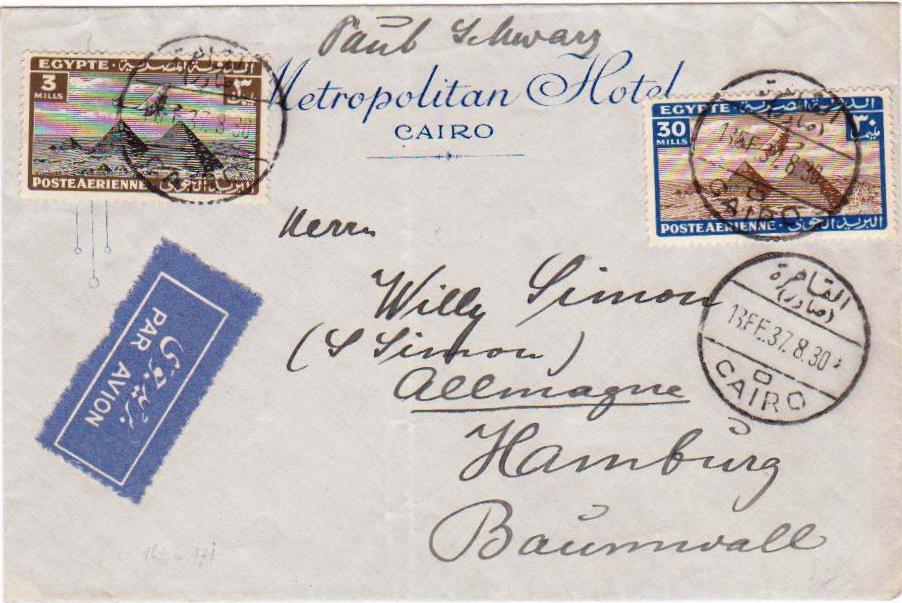 Paul Schwarz
Metropolitan Hotel
CAIRO
EGYPTE · الدولة المصرية
3
MILLS
٣
POSTE AERIENNE · البريد الجوى
EGYPTE · الدولة المصرية
30
MILLS
٣٠
مليم
POSTE AERIENNE · البريد الجوى
القاهرة
13 FE 37. 8.30
CAIRO
القاهرة
(صادر)
13 FE. 37. 8.30
CAIRO
Herrn
Willy Simon
(S Simon)
Allemagne
Hamburg
Baumwall
PAR AVION